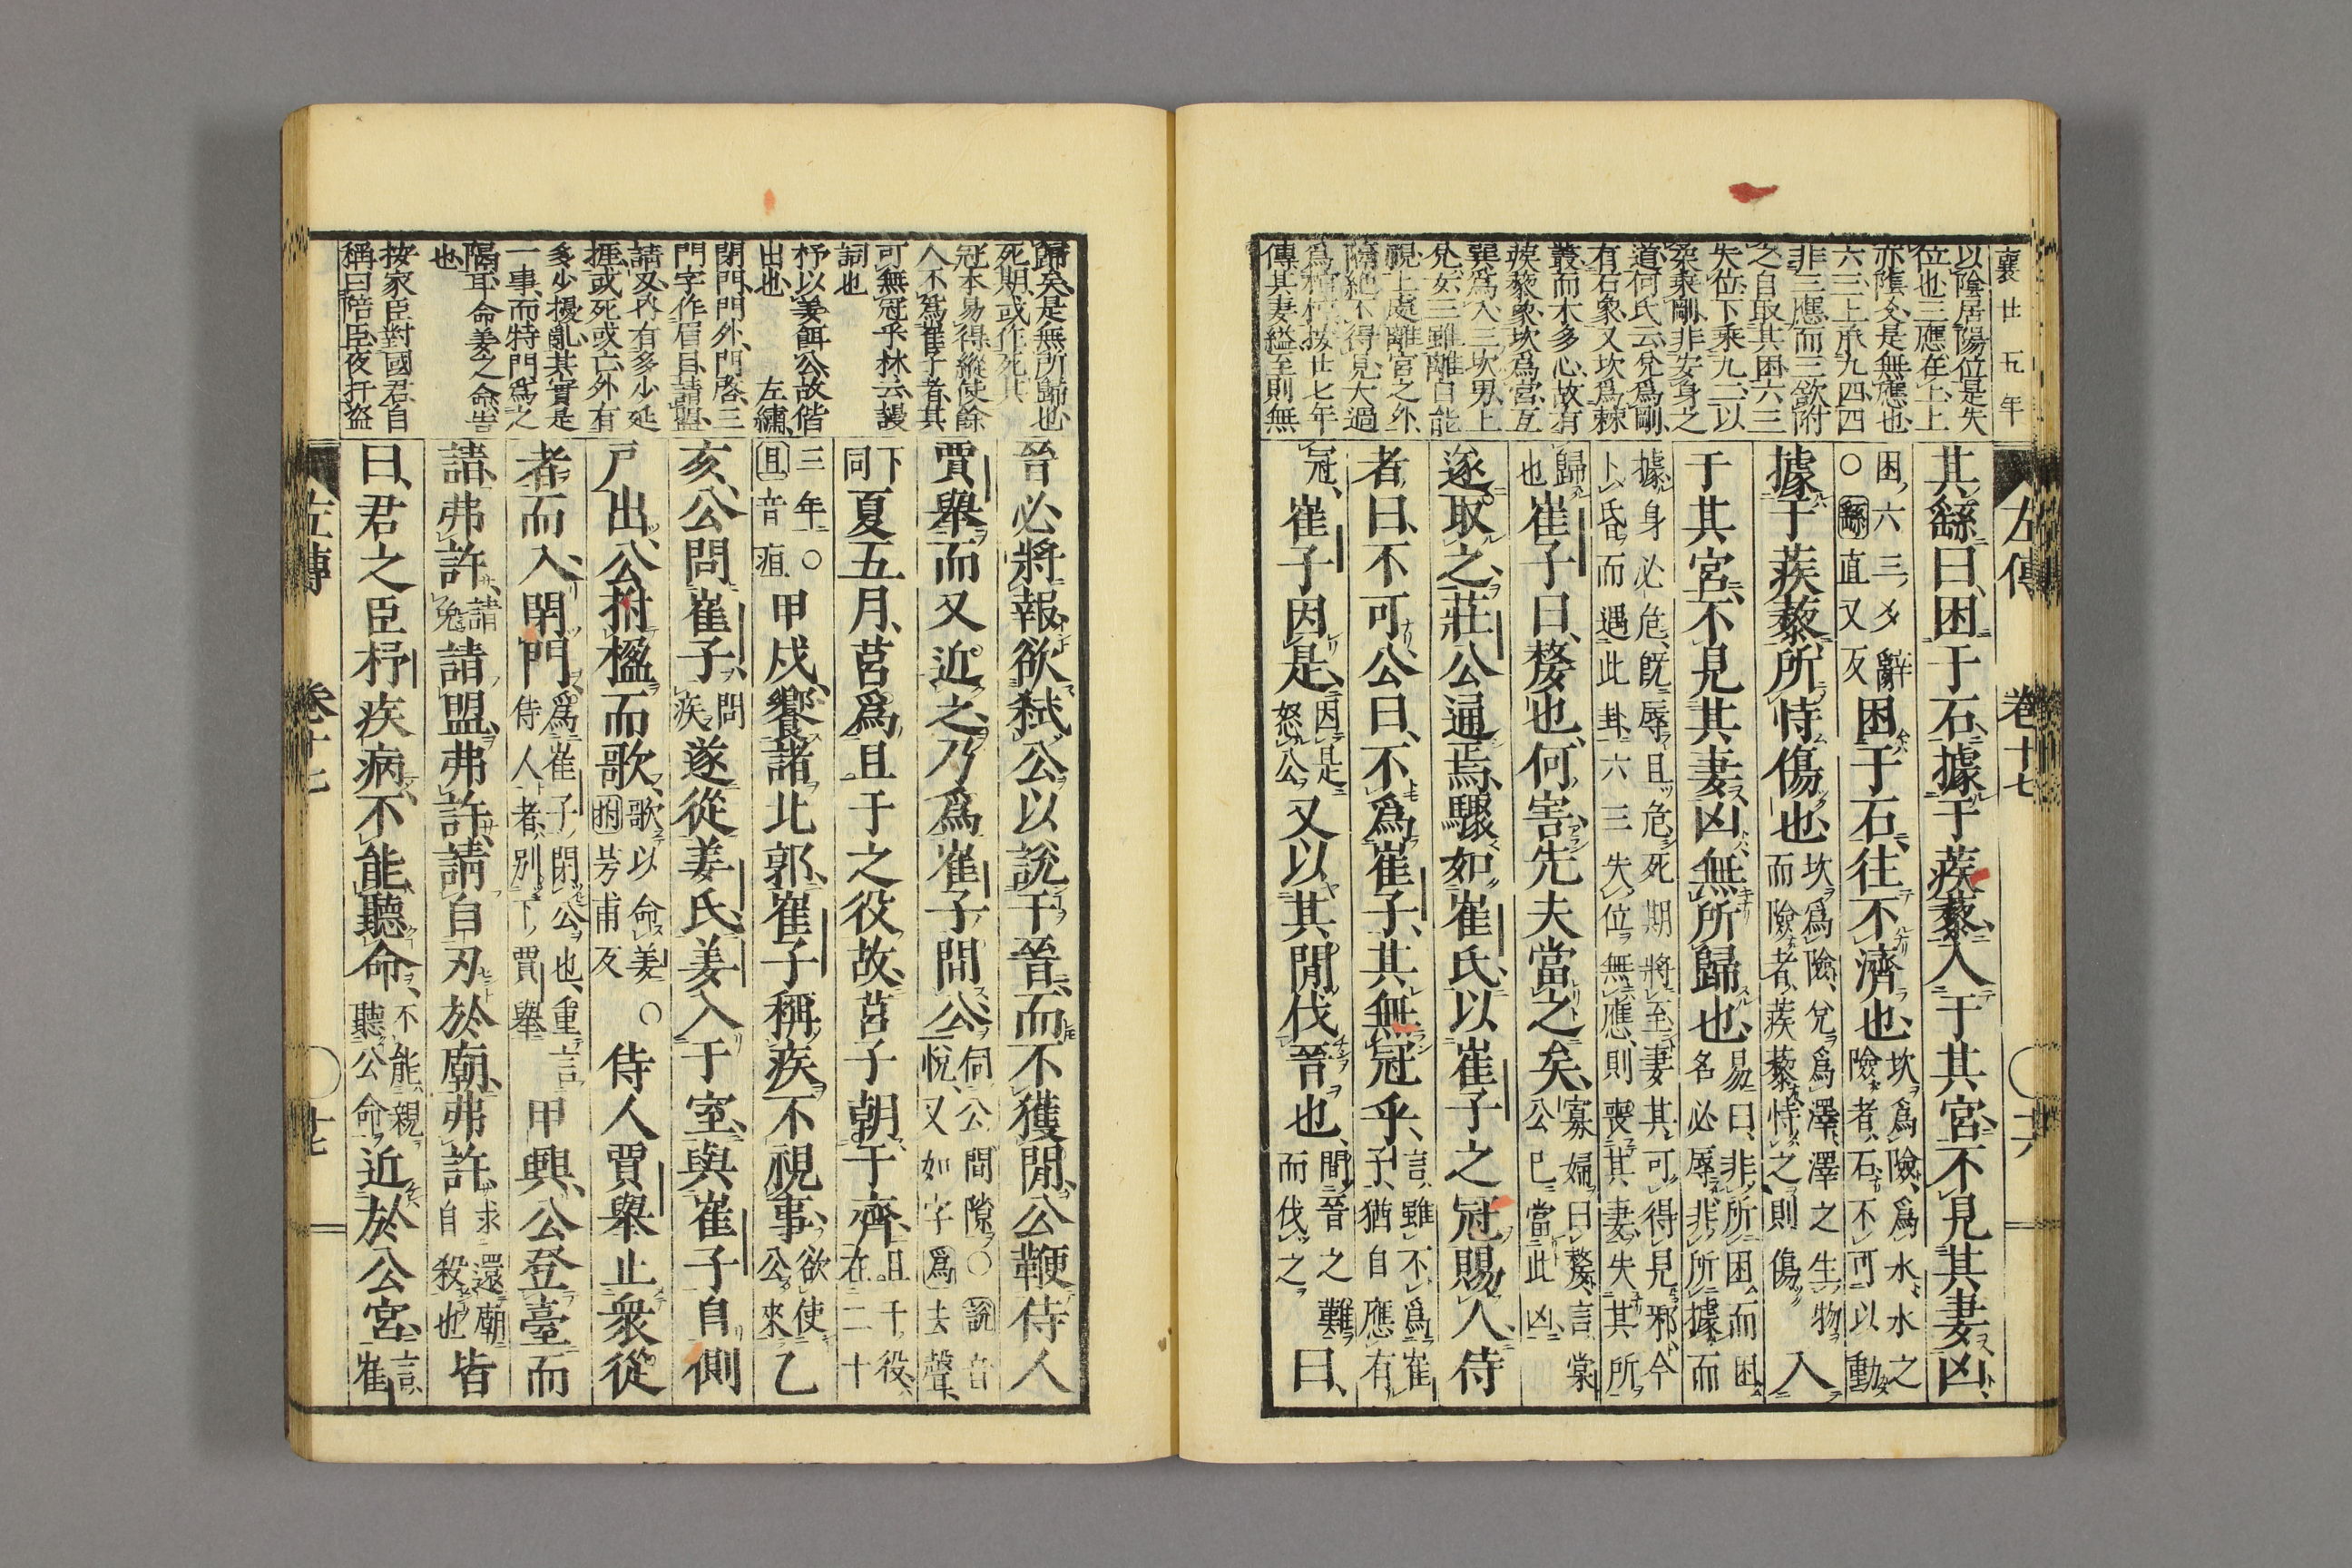 襄廿五年
以陰居陽位是失
位也三應在上上
亦陰爻是無應也
六三上承九四四
非三應而三欲附
之自取其困六三
失位下乘九二以
柔乘剛非安身之
道何氏云兌爲剛
有石象又坎爲棘
叢而木多心故有
蒺藜象坎爲宮互
巽爲入三坎男上
兌女三雖離目能
視上處離宮之外
隂絶不得見大過
爲棺椁按廿七年
傳其妻縊至則無
左傳 卷十七 十六
其繇曰、困于石、據于蒺藜、入于其宮、不見其妻、凶、
困六三爻辭
○繇直又反
困于石、往不濟也、
坎爲險、爲水、水之
險者、石不可以動
據于蒺藜、所恃傷也、
坎爲險、兌爲澤、澤之生物
而險者、蒺藜恃之、則傷
入
于其宮、不見其妻、凶、無所歸也、
易曰、非所困而困、
名必辱、非所據而
據身必危、旣辱且危、死期將至、妻其可得見邪、今
卜昏、而遇此卦、六三失位無應、則喪其妻、失其所
歸
也
崔子曰、嫠也、何害、先夫當之矣、
寡婦曰嫠、言棠
公已當此凶
遂取之、莊公通焉、驟如崔氏、以崔子之冠賜人、侍
者曰、不可、公曰、不爲崔子、其無冠乎、
言雖不爲崔
子、猶自應有
冠、
崔子因是、
因是
怒公
又以其閒伐晉也、
間晉之難
而伐之
曰、
歸矣是無所歸也
死期或作死其
冠本易得縱使餘
人不爲崔子者其
可無冠乎林云謾
詞也
杼以姜餌公故偕
出也 左繡
閉門、門外、門啓、三
門字作眉目、請盟、
請又内有多少延
捱或死或亡、外有
多少擾亂、其實是
一事、而特門爲之
隔耳、命姜之命、告
也
按家臣對國君自
稱曰陪臣、夜扞盗
晉必將報、欲弑公以說于晉、而不獲閒、公鞭侍人
賈舉、而又近之、乃爲崔子閒公、
伺公間隙、○說音
悅、又如字、爲去聲、
下
同
夏五月、莒爲且于之役故、莒子朝于齊、
且于役、
在二十
三年○
且音疽
甲戌、饗諸北郭、崔子稱疾、不視事、
欲使
公來
乙
亥、公問崔子、
問
疾
遂從姜氏、姜入于室、與崔子自側
戶出、公拊楹而歌、
歌以命姜○
拊芳甫反
侍人賈舉止衆從
者、而入、閉門、
爲崔子閉公也、重言
侍人者、別下賈舉
甲興、公登臺而
請、弗許、
請
免
請盟、弗許、請自刃於廟、弗許、
求還廟
自殺也
皆
曰、君之臣杼疾病、不能聽命、
不能親
聽公命
近於公宮、
言崔
左傳 卷十七 十七